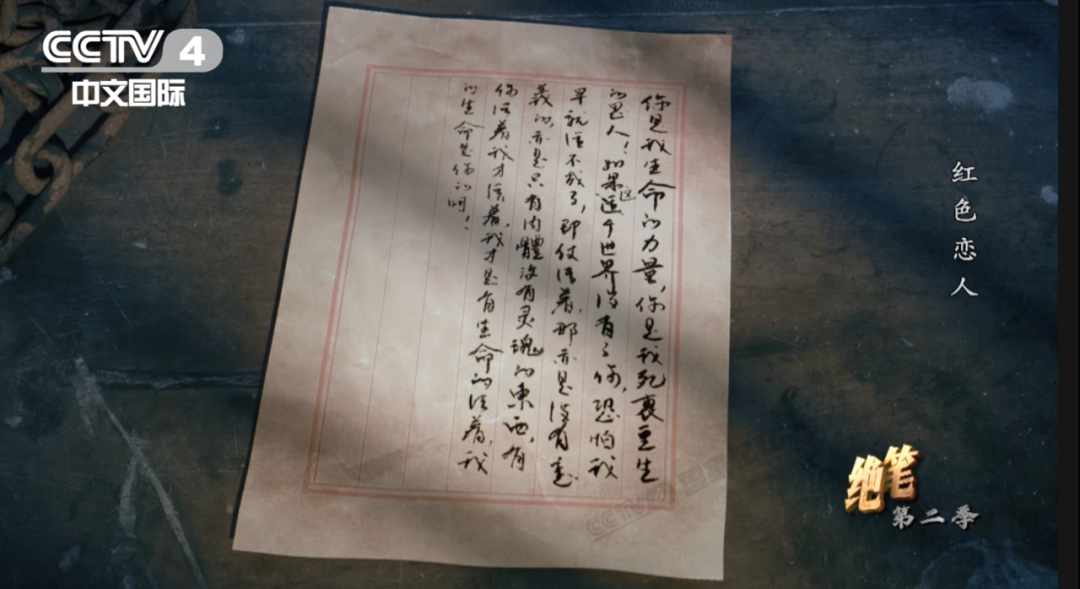 CCTV 4
中文国际
你是我生命的力量,你是我死裏重生
的恩人!如果这个世界没有了你,恐怕我
早就活不成了,即使活着,那亦是没有意
義的,亦是只有肉體没有灵魂的東西,有
你活着我才活着,我才是有生命的活着,我
的生命是你的呵!
红色恋人
绝笔
第二季
CCTV